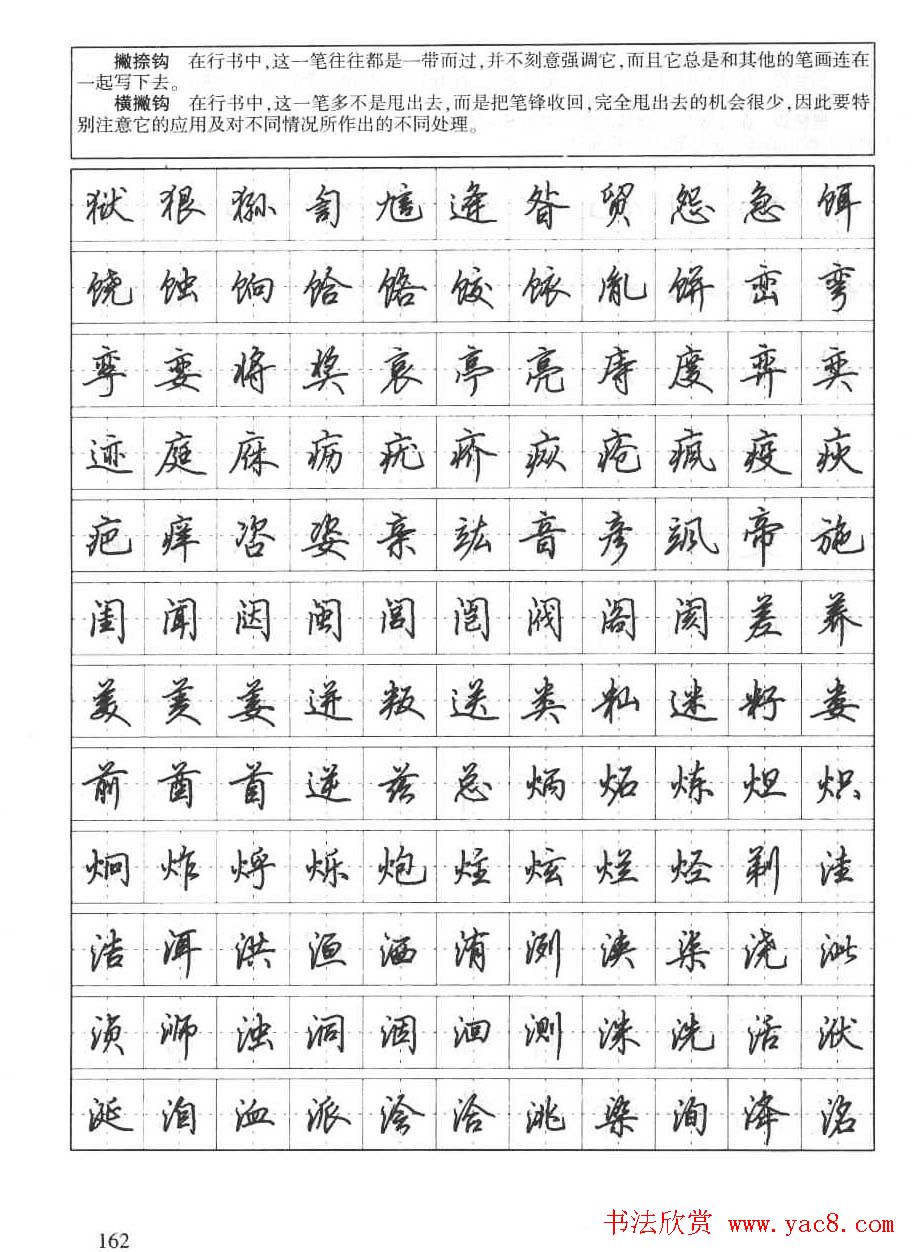 撇捺钩 在行书中,这一笔往往都是一带而过,并不刻意强调它,而且它总是和其他的笔画连在
一起写下去。
横撇钩 在行书中,这一笔多不是甩出去,而是把笔锋收回,完全甩出去的机会很少,因此要特
别注意它的应用及对不同情况所作出的不同处理。
狱 狠 狲 訇 訄 逄 昝 贸 怨 急 饵
饶 蚀 饷 饸 饹 饺 依 胤 饼 峦 弯
孪 娈 将 奖 哀 亭 亮 庤 度 弈 奕
迹 庭 庥 疬 疣 疥 疭 疮 疯 疫 疢
疤 痒 咨 姿 亲 竑 音 彦 飒 帝 施
闺 闻 闼 闽 闾 闿 阀 阁 阂 差 养
美 羑 姜 迸 叛 送 类 籼 迷 籽 娄
前 酋 首 逆 兹 总 炳 炻 炼 炟 炽
炯 炸 烀 烁 炮 炷 炫 烂 烃 剃 洼
洁 洱 洪 洹 洒 洧 洌 浃 柒 浇 泚
浈 浉 浊 洞 洇 洄 测 洙 洗 活 洑
涎 洎 洫 派 浍 洽 洮 染 洵 洚 洺
162
书法欣赏 www.yac8.com